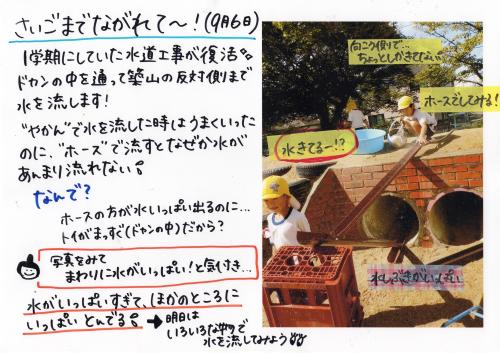 さいごまでながれて〜！(9月6日)
1学期にしていた水道工事が復活
ドカンの中を通って築山の反対側まで
水を流します！
"やかん"で水を流した時はうまくいった
のに、"ホース"で流すとなぜか水が
あんまり流れない。
なんで？
ホースの方が水いっぱい出るのに…
トイがまっすぐ(ドカンの中)だから？
写真をみて
まわりに水がいっぱい！と気付き…
水がいっぱいすぎて、ほかのところに
いっぱいとんでる。
→明日は
いろいろな物で
水を流してみよう
向こう側で…
ちょっとしかきてない
ホースでしてみる！
水きてるー！？
水しぶきがいっぱい